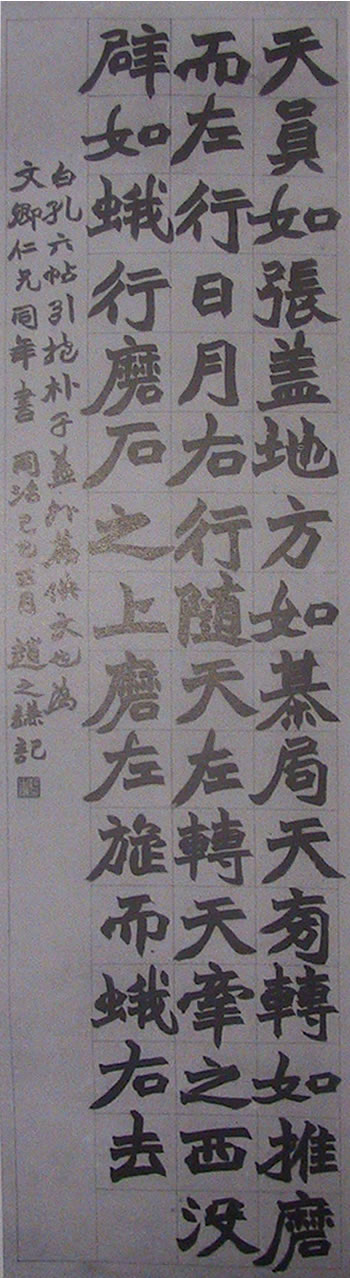 天員如張盖地方如棊局天旁轉如推磨
而左行日月右行随天左轉天牽之西没
辟如蛾行磨石之上磨左旋而蛾右去
白孔六帖引抱朴子盖外篇佚文也為
文卿仁兄同年書 同治己巳四月 趙之謙記